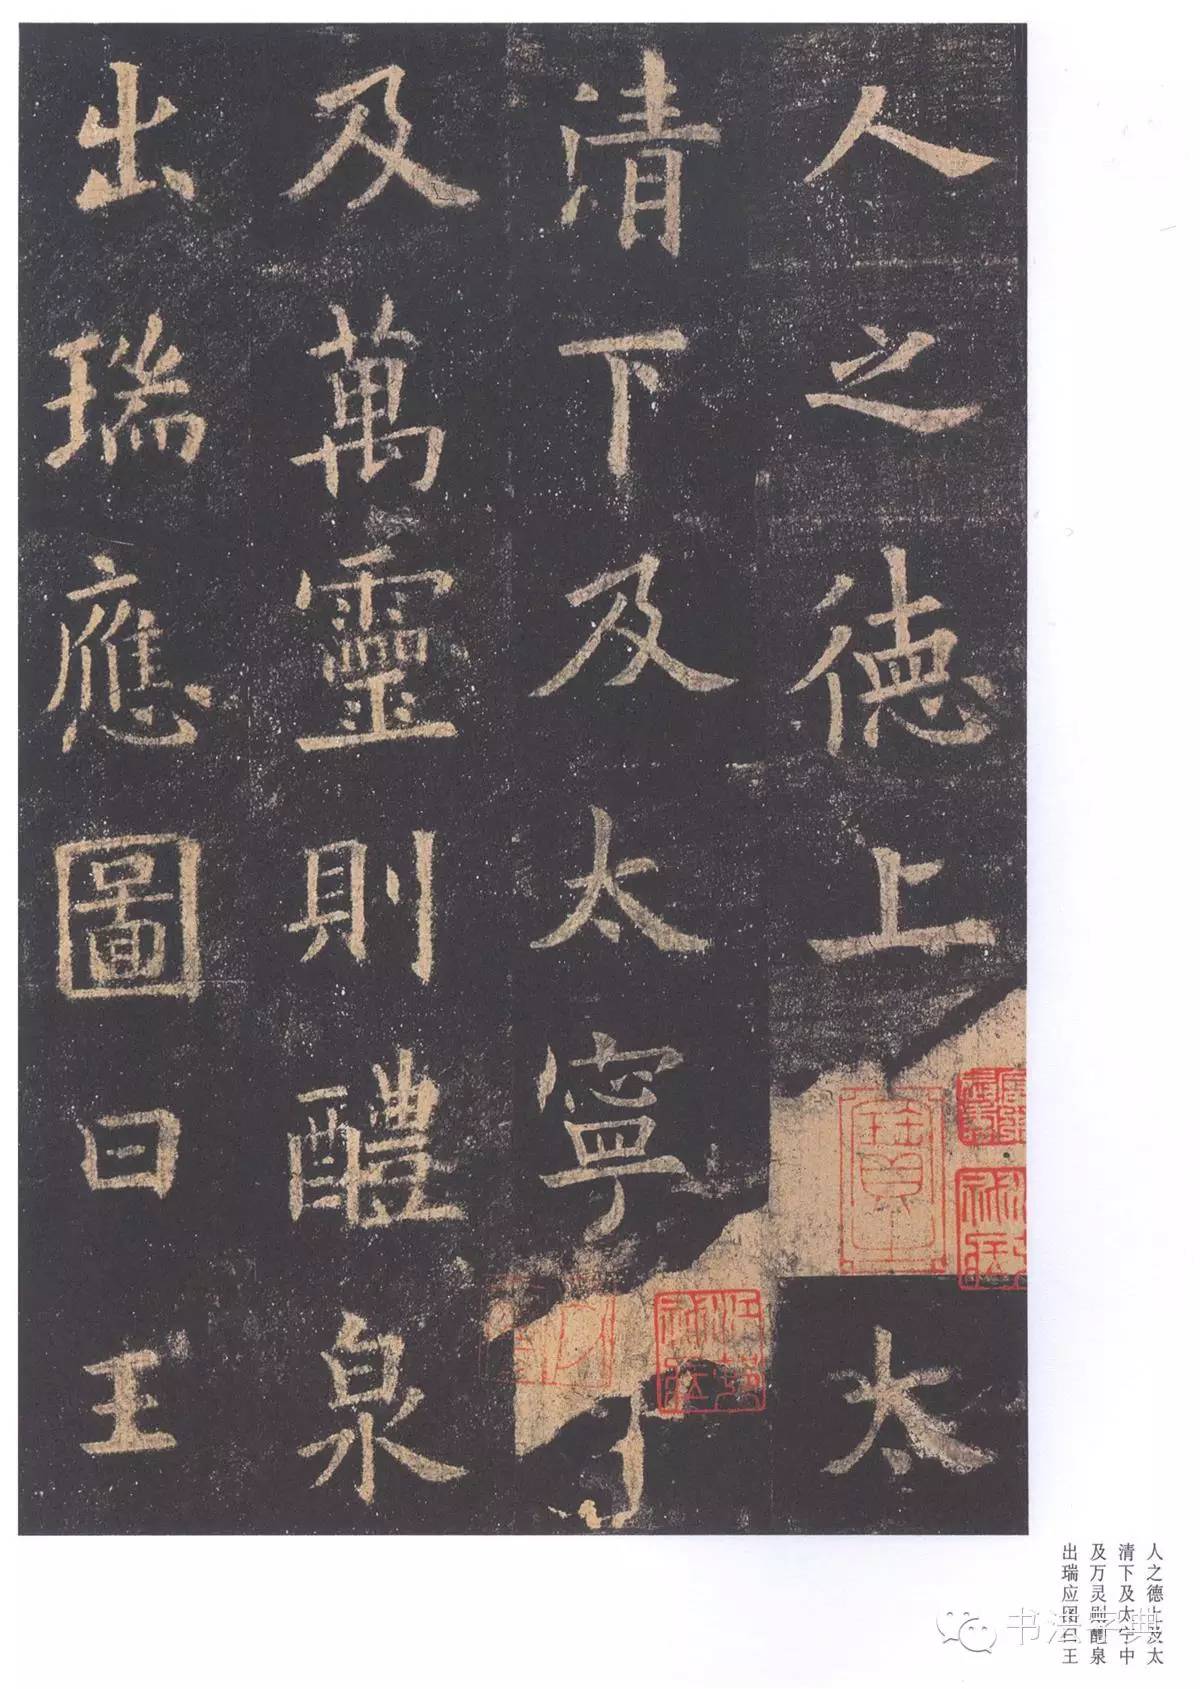 人之德上太
清下及太寧
及萬靈則醴泉
出瑞應圖曰王
人之德上及太
清下及太宁中
及万灵则醴泉
出瑞应图曰王
书法字典